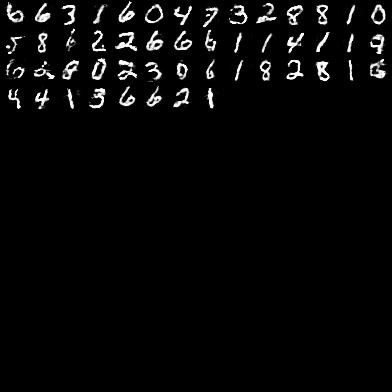 6 6 3 1 6 0 4 7 3 2 8 8 1 0
5 8 6 2 2 6 6 6 1 1 4 1 1 9
6 8 0 2 3 0 6 1 8 2 8 1
4 4 1 3 6 6 2 1